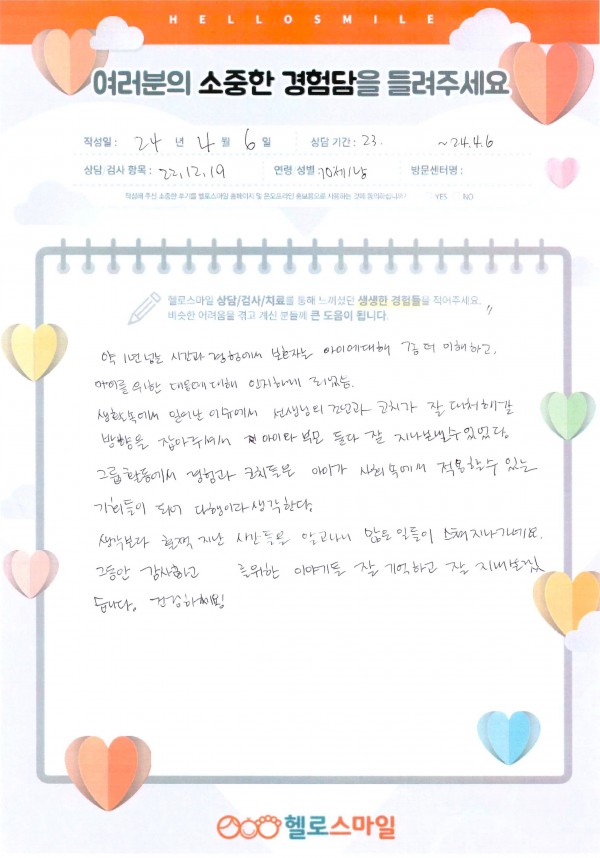 HELLOSMILE
여러분의 소중한 경험담을 들려주세요
작성일 : 24 년 4 월 6 일 상담 기간 : 23. ~24.4.6
상담 검사 항목 : 22.12.19 연령/성별 : 10세/남 방문센터명 :
작성해 주신 소중한 후기를 헬로스마일 홈페이지 및 온오프라인 홍보용으로 사용하는 것에 동의하십니까? YES NO
헬로스마일 상담/검사/치료를 통해 느끼셨던 생생한 경험들을 적어주세요.
비슷한 어려움을 겪고 계신 분들께 큰 도움이 됩니다.
약 1년 넘는 시간과 경험에서 보호자는 아이에 대해 좀 더 이해하고,
아이를 위한 대응에 대해 인지하게 되었음.
생활 속에서 일어난 이슈에서 선생님의 조언과 코치가 잘 대처해갈
방향을 잡아주셔서 아이와 부모 둘 다 잘 지나보낼 수 있었다.
그룹활동에서 경험과 코치들은 아이가 사회 속에서 적용할 수 있는
기회들이 되어 다행이라 생각한다.
생각보다 훌쩍 지난 시간들을 알고나니 많은 일들이 스쳐 지나가네요.
그동안 감사하고 를 위한 이야기들 잘 기억하고 잘 지내보겠
습니다. 건강하세요!
헬로스마일